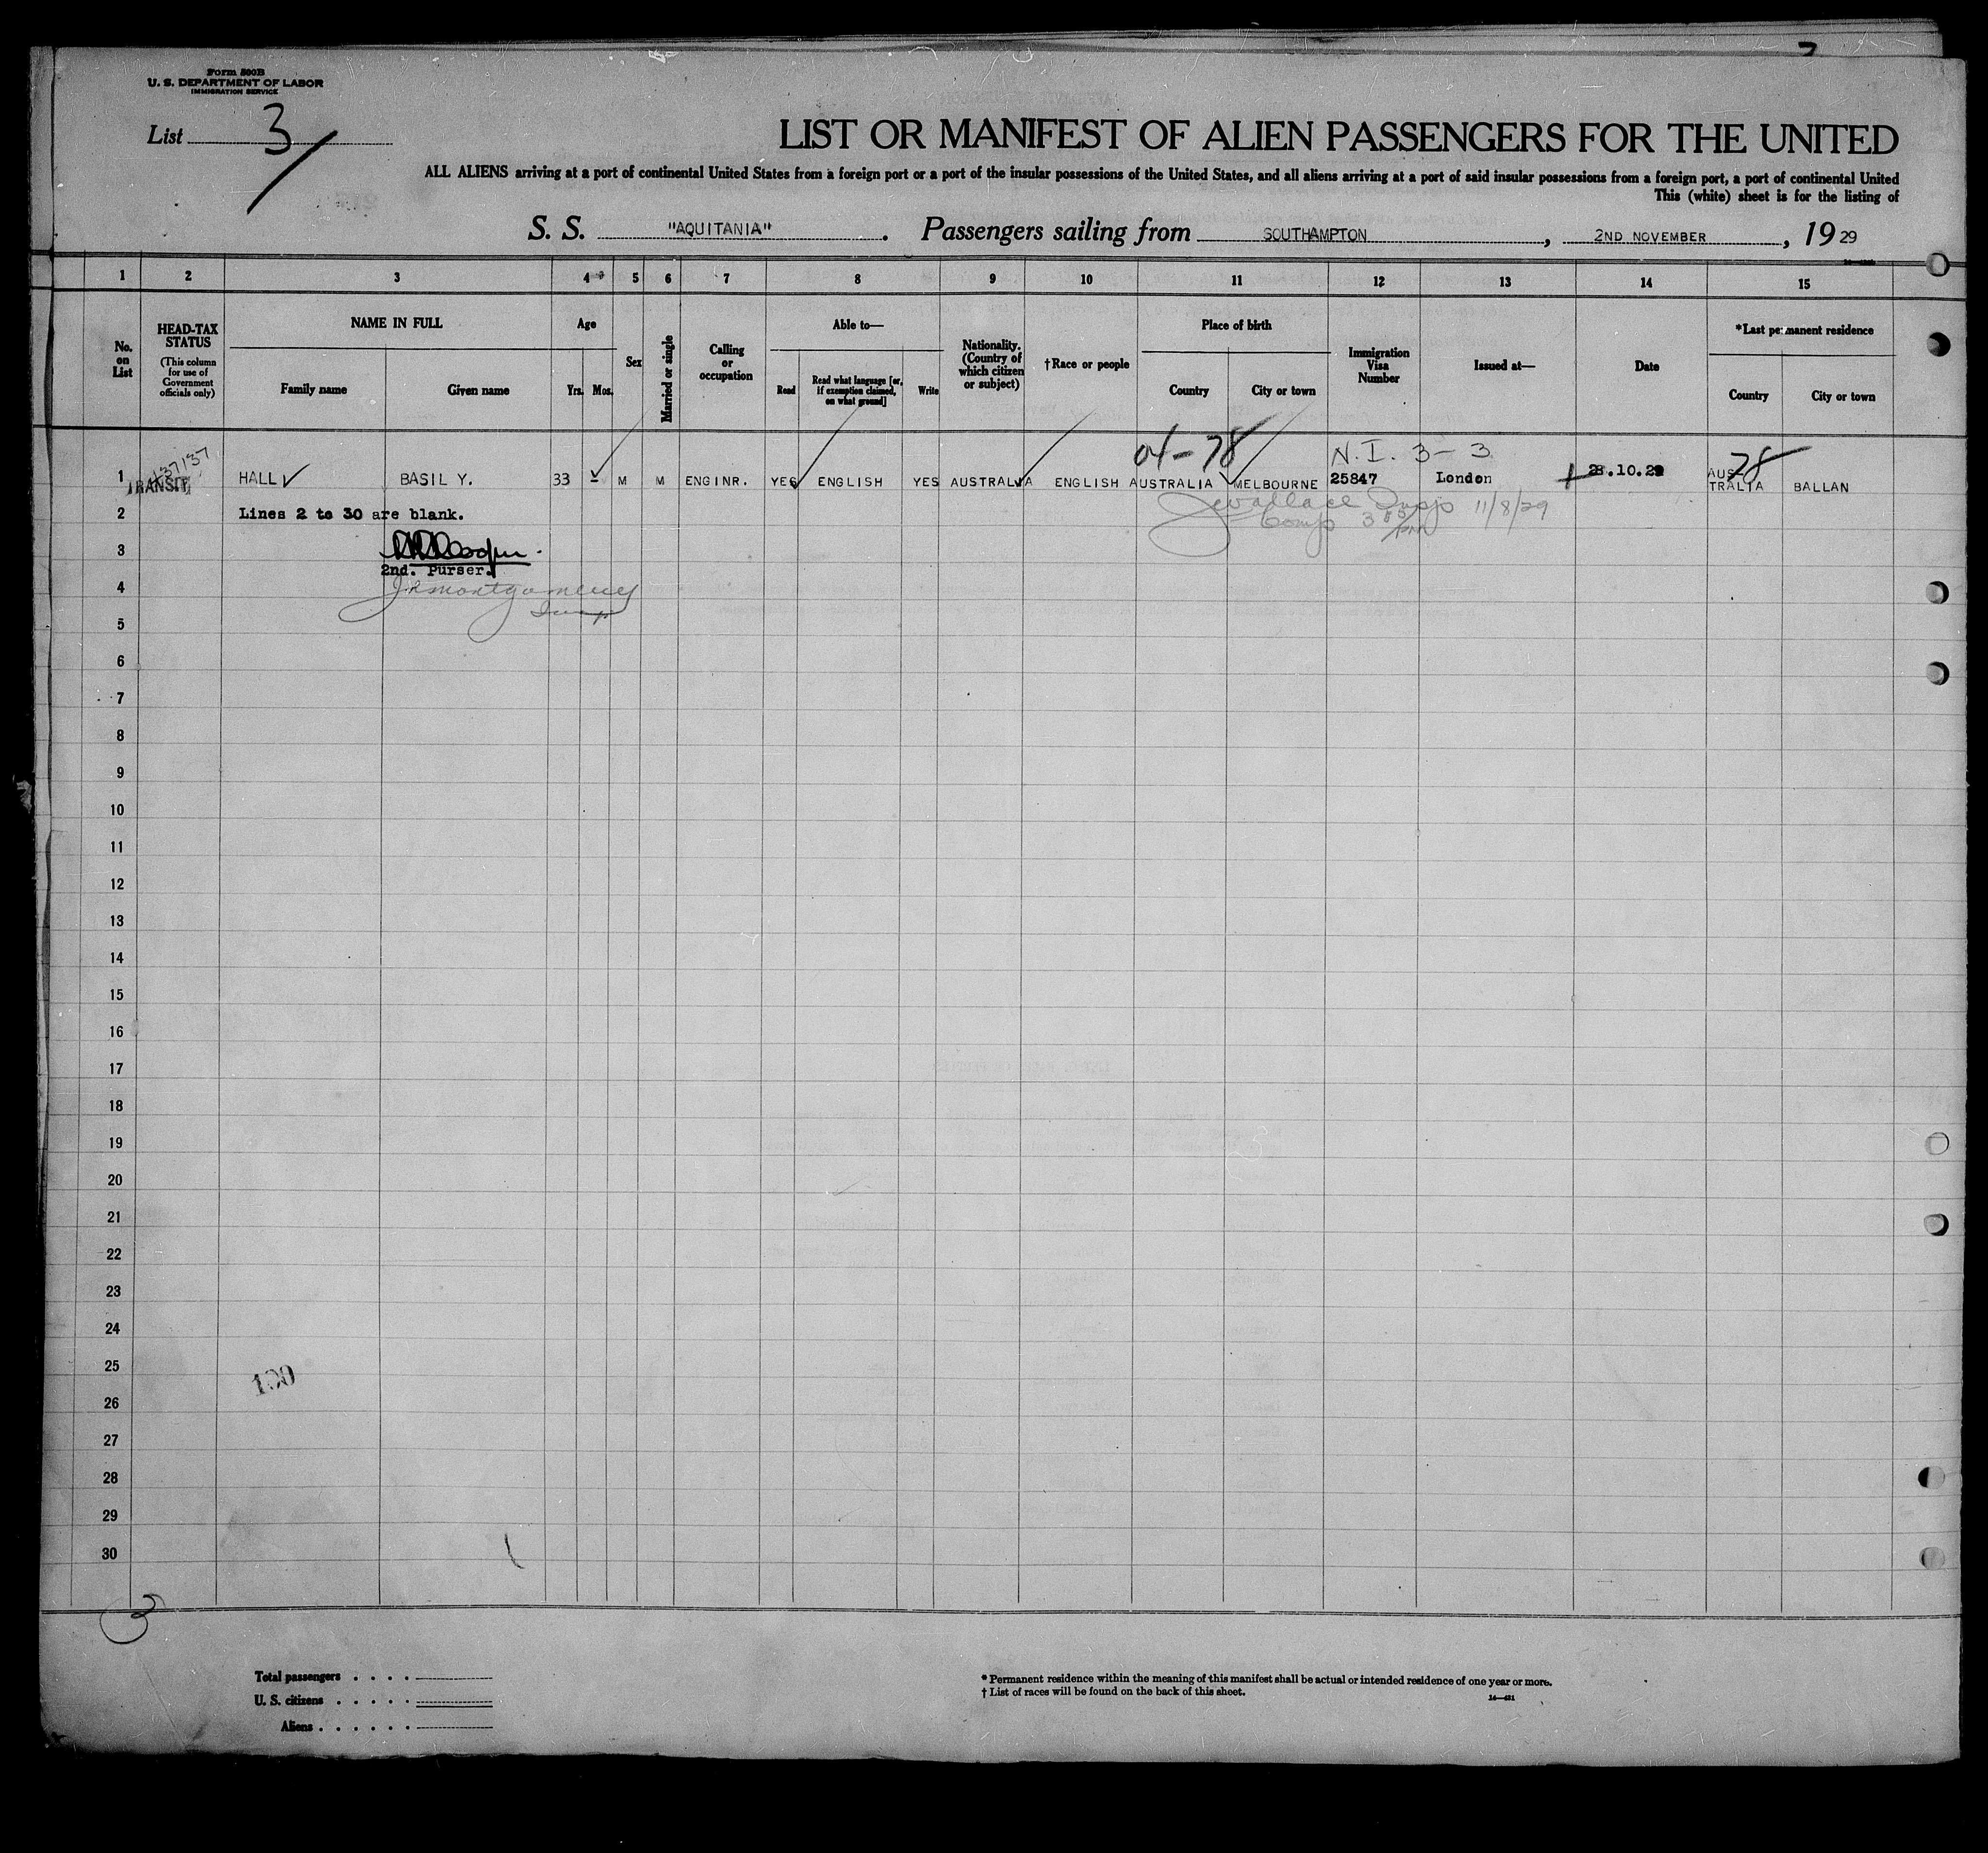 Form 500B
U. S. DEPARTMENT OF LABOR
IMMIGRATION SERVICE
List 3
LIST OR MANIFEST OF ALIEN PASSENGERS FOR THE UNITED
ALL ALIENS arriving at a port of continental United States from a foreign port or a port of the insular possessions of the United States, and all aliens arriving at a port of said insular possessions from a foreign port, a port of continental United
This (white) sheet is for the listing of
S. S. "AQUITANIA". Passengers sailing from SOUTHAMPTON, 2ND NOVEMBER, 19 29
1 2 3 4 5 6 7 8 9 10 11 12 13 14 15
No. on List
HEAD-TAX STATUS
(This column for use of Government officials only)
NAME IN FULL
Family name Given name
Age
Yrs. Mos.
Sex
Married or single
Calling or occupation
Able to—
Read
Read what language [or, if exemption claimed, on what ground]
Write
Nationality. (Country of which citizen or subject)
†Race or people
Place of birth
Country City or town
Immigration Visa Number
Issued at—
Date
*Last permanent residence
Country City or town
04-78 N.I. 3-3 78
137137
1 TRANSIT HALL BASIL Y. 33 - M M ENGINR. YES ENGLISH YES AUSTRALIA ENGLISH AUSTRALIA MELBOURNE 25847 London 28.10.29 AUS- TRALIA BALLAN
Wallace Insp 11/8/29
2 Lines 2 to 30 are blank.
3
2nd. Purser.
4 Montgomery
Insp
5
6
7
8
9
10
11
12
13
14
15
16
17
18
19
20
21
22
23
24
25
100
26
27
28
29
30
3
Total passengers . . . .
U. S. citizens . . . . .
Aliens . . . . . .
* Permanent residence within the meaning of this manifest shall be actual or intended residence of one year or more.
† List of races will be found on the back of this sheet.
14—431